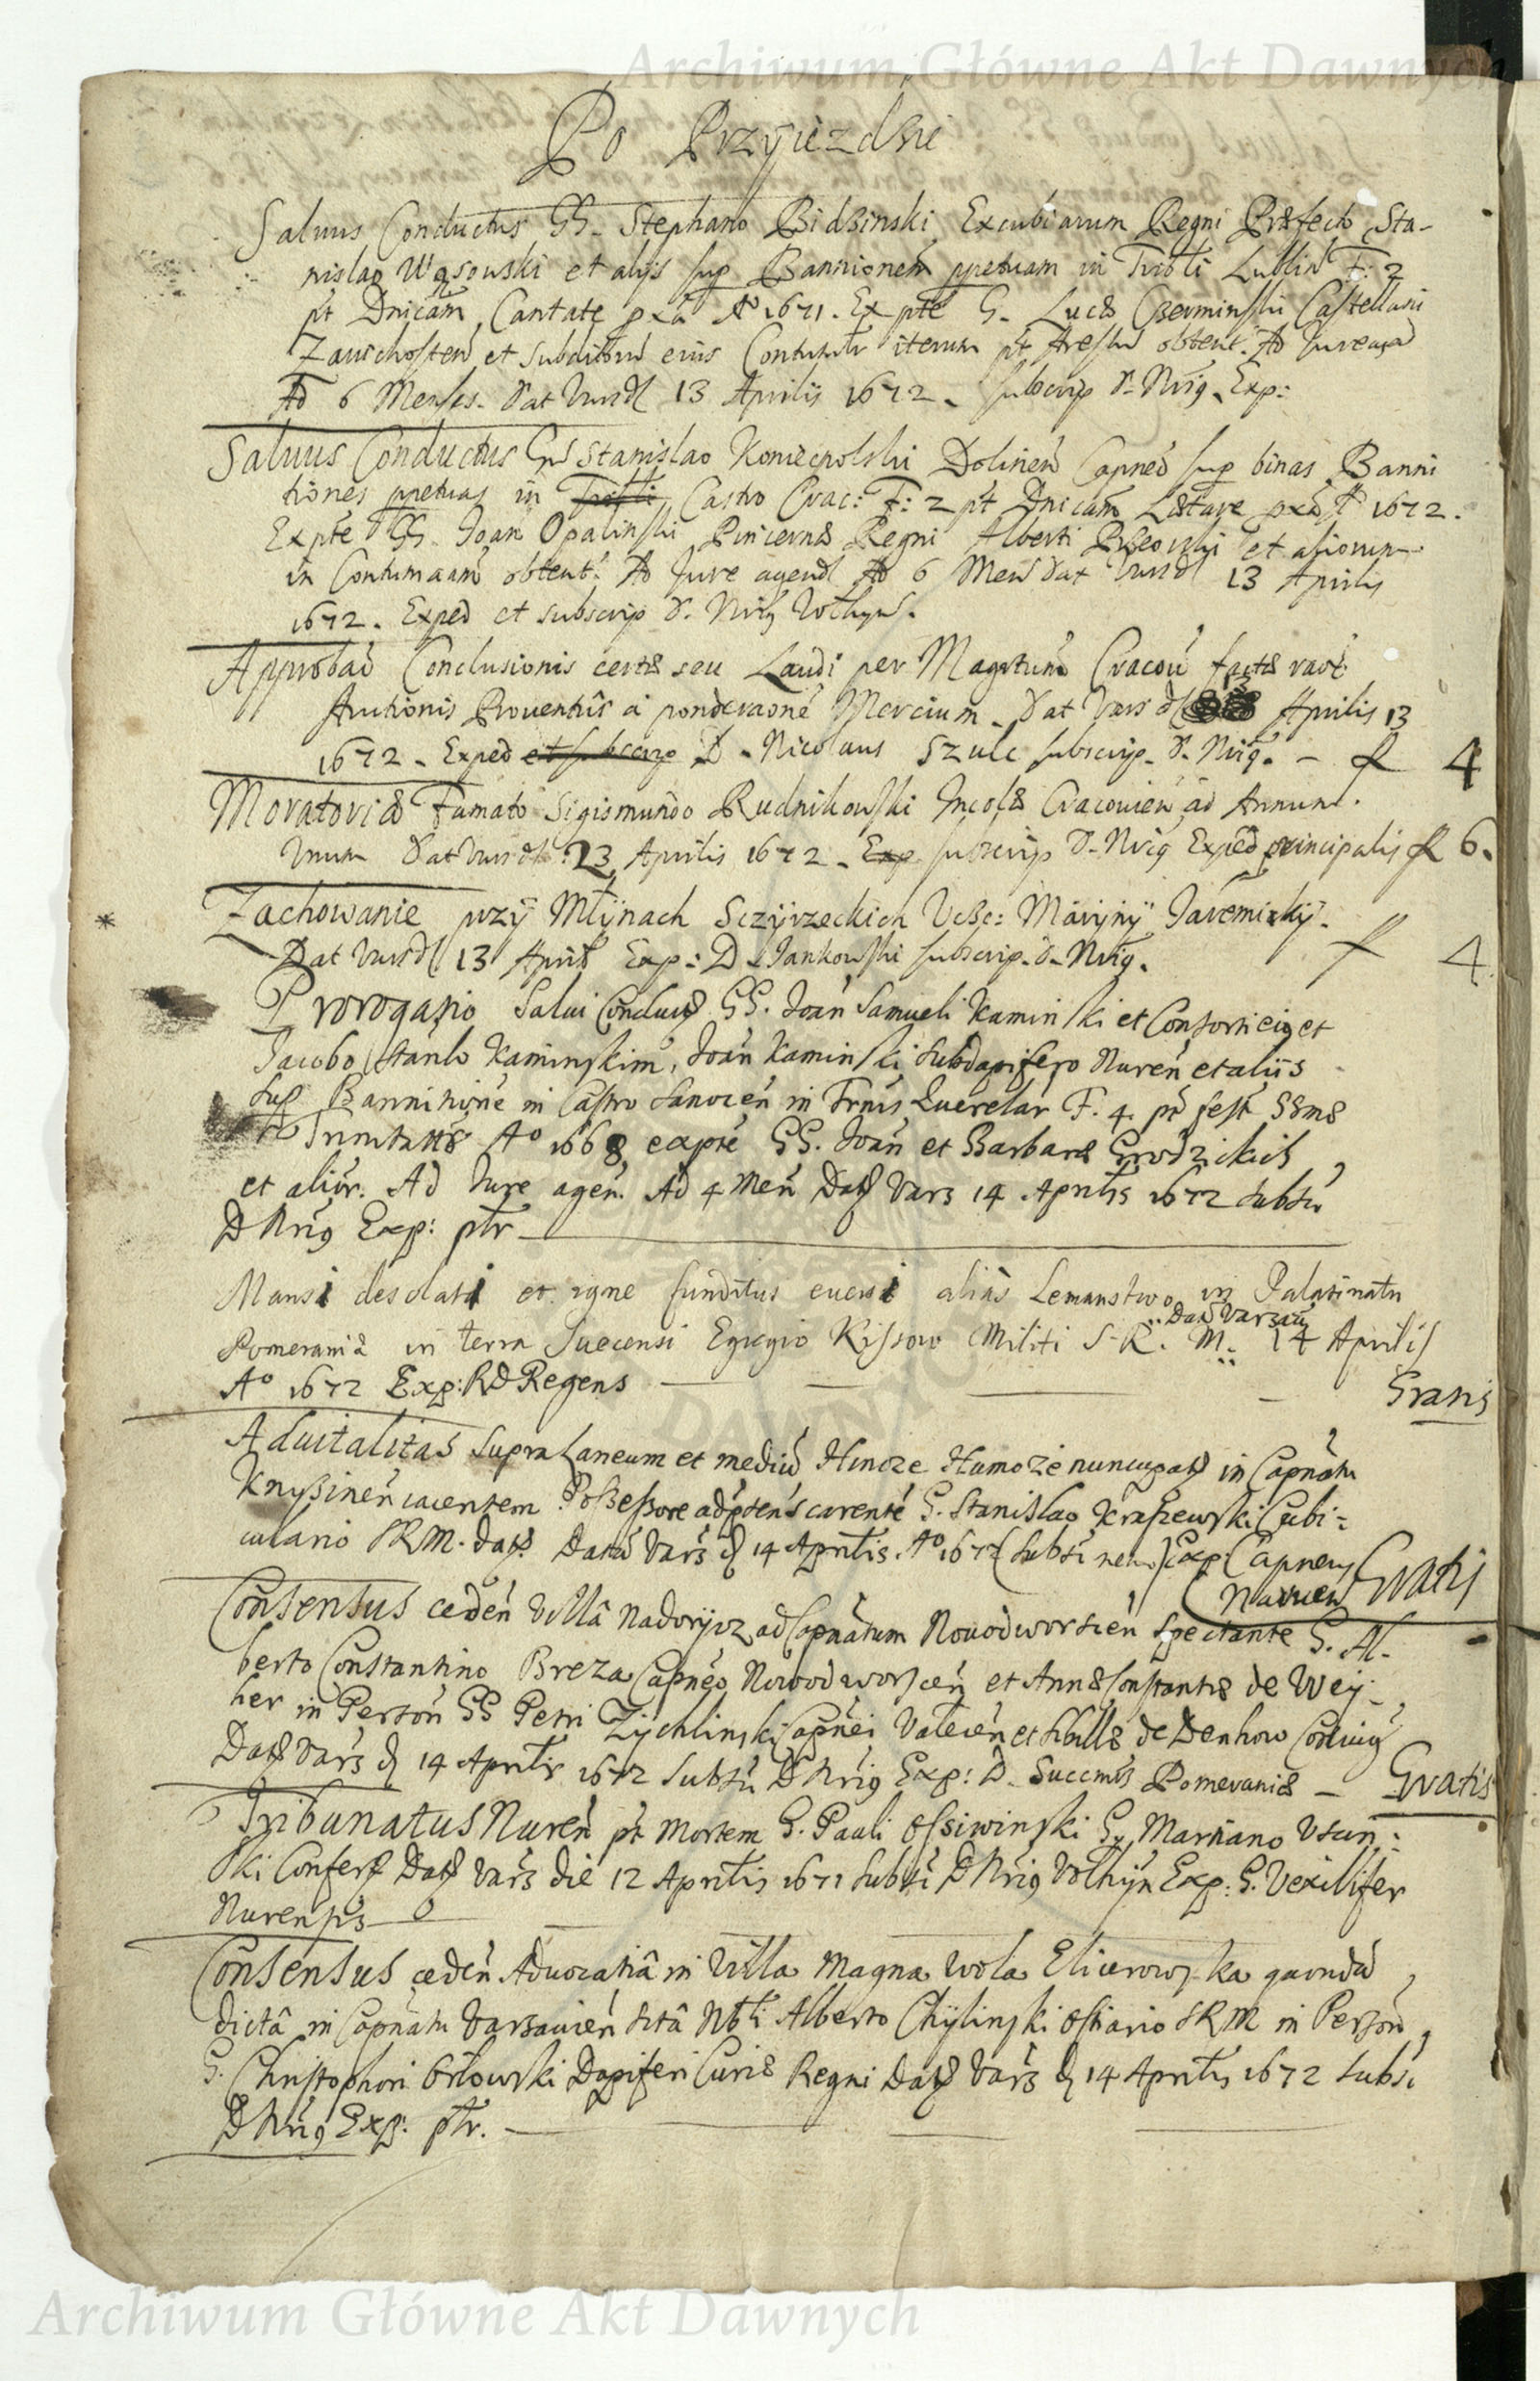 Archiwum Główne Akt Dawnych
Po Przyiezdzie
Saluus Conductus GG. Stephano Bidzinski Excubiarum Regni Præfecto Sta-
nislao Wąsowski et alijs sup Bannionem ppetuam in Tribli Lublin F: 2
pt Dnicam Cantate pxa Aº 1671. Ex pte G. Lucæ Czerminski Castellani
Zawichosten et subditoru eius iterum pt obtent. Ad
Ad 6 Menses. Dat 13 Aprilis 1672. subscrip D. Nrig. Exp:
Saluus Conductus Gso Stanislao Koniecpolski Dolinen Capneo sup binas Banni
tiones ppetuas in Castro Crac: F: 2 pt Dnicam Lætare pxa Aº 1672.
Ex pte GG. Joan Opalinski Pincernæ Regni Alberti et aliorum
in Contumaam obtent. Ad Jure agend Ad 6 Men Dat 13 Aprilis
1672. Exped et subscrip D. Nrig Wolhyn.
Approbao Conclusionis certæ seu Laudi per Magrtum Cracou factæ raõe
Auctionis Prouentûs à ponderaoné Mercium. Dat Vars d Aprilis 13
1672. Exped et subscrip D. Nicolaus Szulc subscrip. D. Nrig. - f 4
Moratoriæ Famato Sigismundo Rudnikowski Incolæ Cracouien ad Annum
Unum Dat 13 Aprilis 1672. Exp subscrip D. Nrig Exped principalis f 6.
* Zachowanie przÿ Młÿnach Sczÿrzeckich Vcżc: Marÿnÿ Jaremickÿ.
Dat 13 April Exp: D. Jankowski subscrip. D. Nrig. f 4
Prorogatio Salui Conduc GG. Joan Samueli Kaminski et Consorti ei9 et
Jacobo Stanlo Kaminskim, Joan Kaminski Subdapifero Nuren et aliis
sup Bannitione in Castro Sanocen in Trnis Querelar F. 4 pt fest SSmæ
Trinitatis Aº 1668 ex pte GG. Joan et Barbaræ Grodzickich
et alior. Ad Jure agen. Ad 4 Men Dat Vars 14 Aprilis 1672 Subsu
D Nrig Exp: ptr
Mansi desolati et igne funditus euersi aliàs Lemanstwo in Palatinatu
Dat Varsau
Pomeraniæ in terra Suecensi Egregio Kissow Militi S. R. M. 14 Aprilis
Aº 1672 Exp: RD Regens Gratis
Aduitalitas supra Laneum et mediu Hincze Humozie nuncupat in Capnatu
Knyszinen iacentem Possessore ad psens carente G. Stanislao Kraszewski Cubi=
culario SRM. dat. Datu Vars d 14 Aprilis. Aº 1672 (Subsi nem) Exp Capneus
Nuren Gratis
Consensus ceden Villâ Nadoryz ad Capnatum Nouodworscen spectante G. Al-
berto Constantino Breza Capneo Nowodworscen et Annæ Constantiæ de Weÿ-
her in Person GG Petri Zychlinski Capnei Valecen et Sibillæ de Denhow Coniug
Dat Vars d 14 Aprilis 1672 Subsu D Nrig Exp: D. Succmis Pomeraniæ - Gratis
Tribunatus Nuren pt Mortem G. Pauli Ossiwinski G. Marciano Vsan=
ski Confert Dat Vars die 12 Aprilis 1671 Subsi D Nrig Volhÿn Exp: G. Vexilifer
Nurensis
Consensus ceden Aduocatiâ in Villa Magna Wola Elicerowska quondã
dictâ in Capnatu Varsauien sitâ Nbli Alberto Chÿlinski Ostiario SRM in Person
G. Christophori Orlowski Dapiferi Curiæ Regni Dat Vars d 14 Aprilis 1672 Subsi
D Nrig Exp: ptr.
Archiwum Główne Akt Dawnych